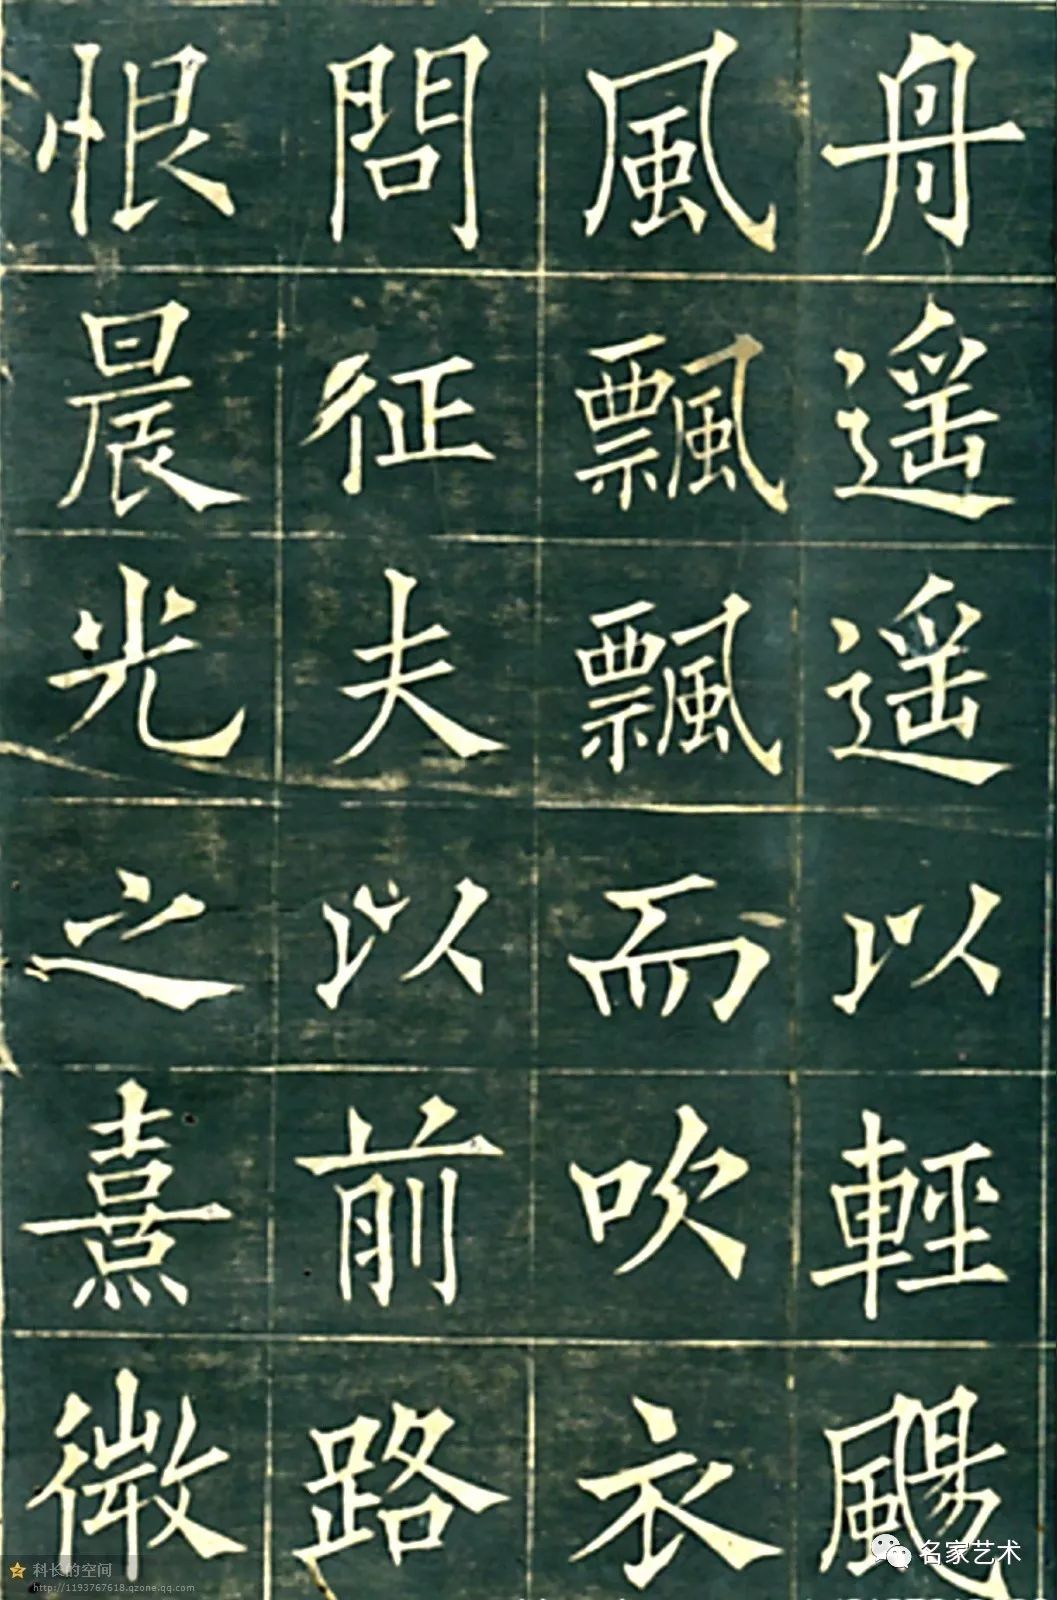 舟遥遥以輕颺
風飄飄而吹衣
問征夫以前路
恨晨光之熹微
科长的空间
http://1193767618.qzone.qq.com
名家艺术